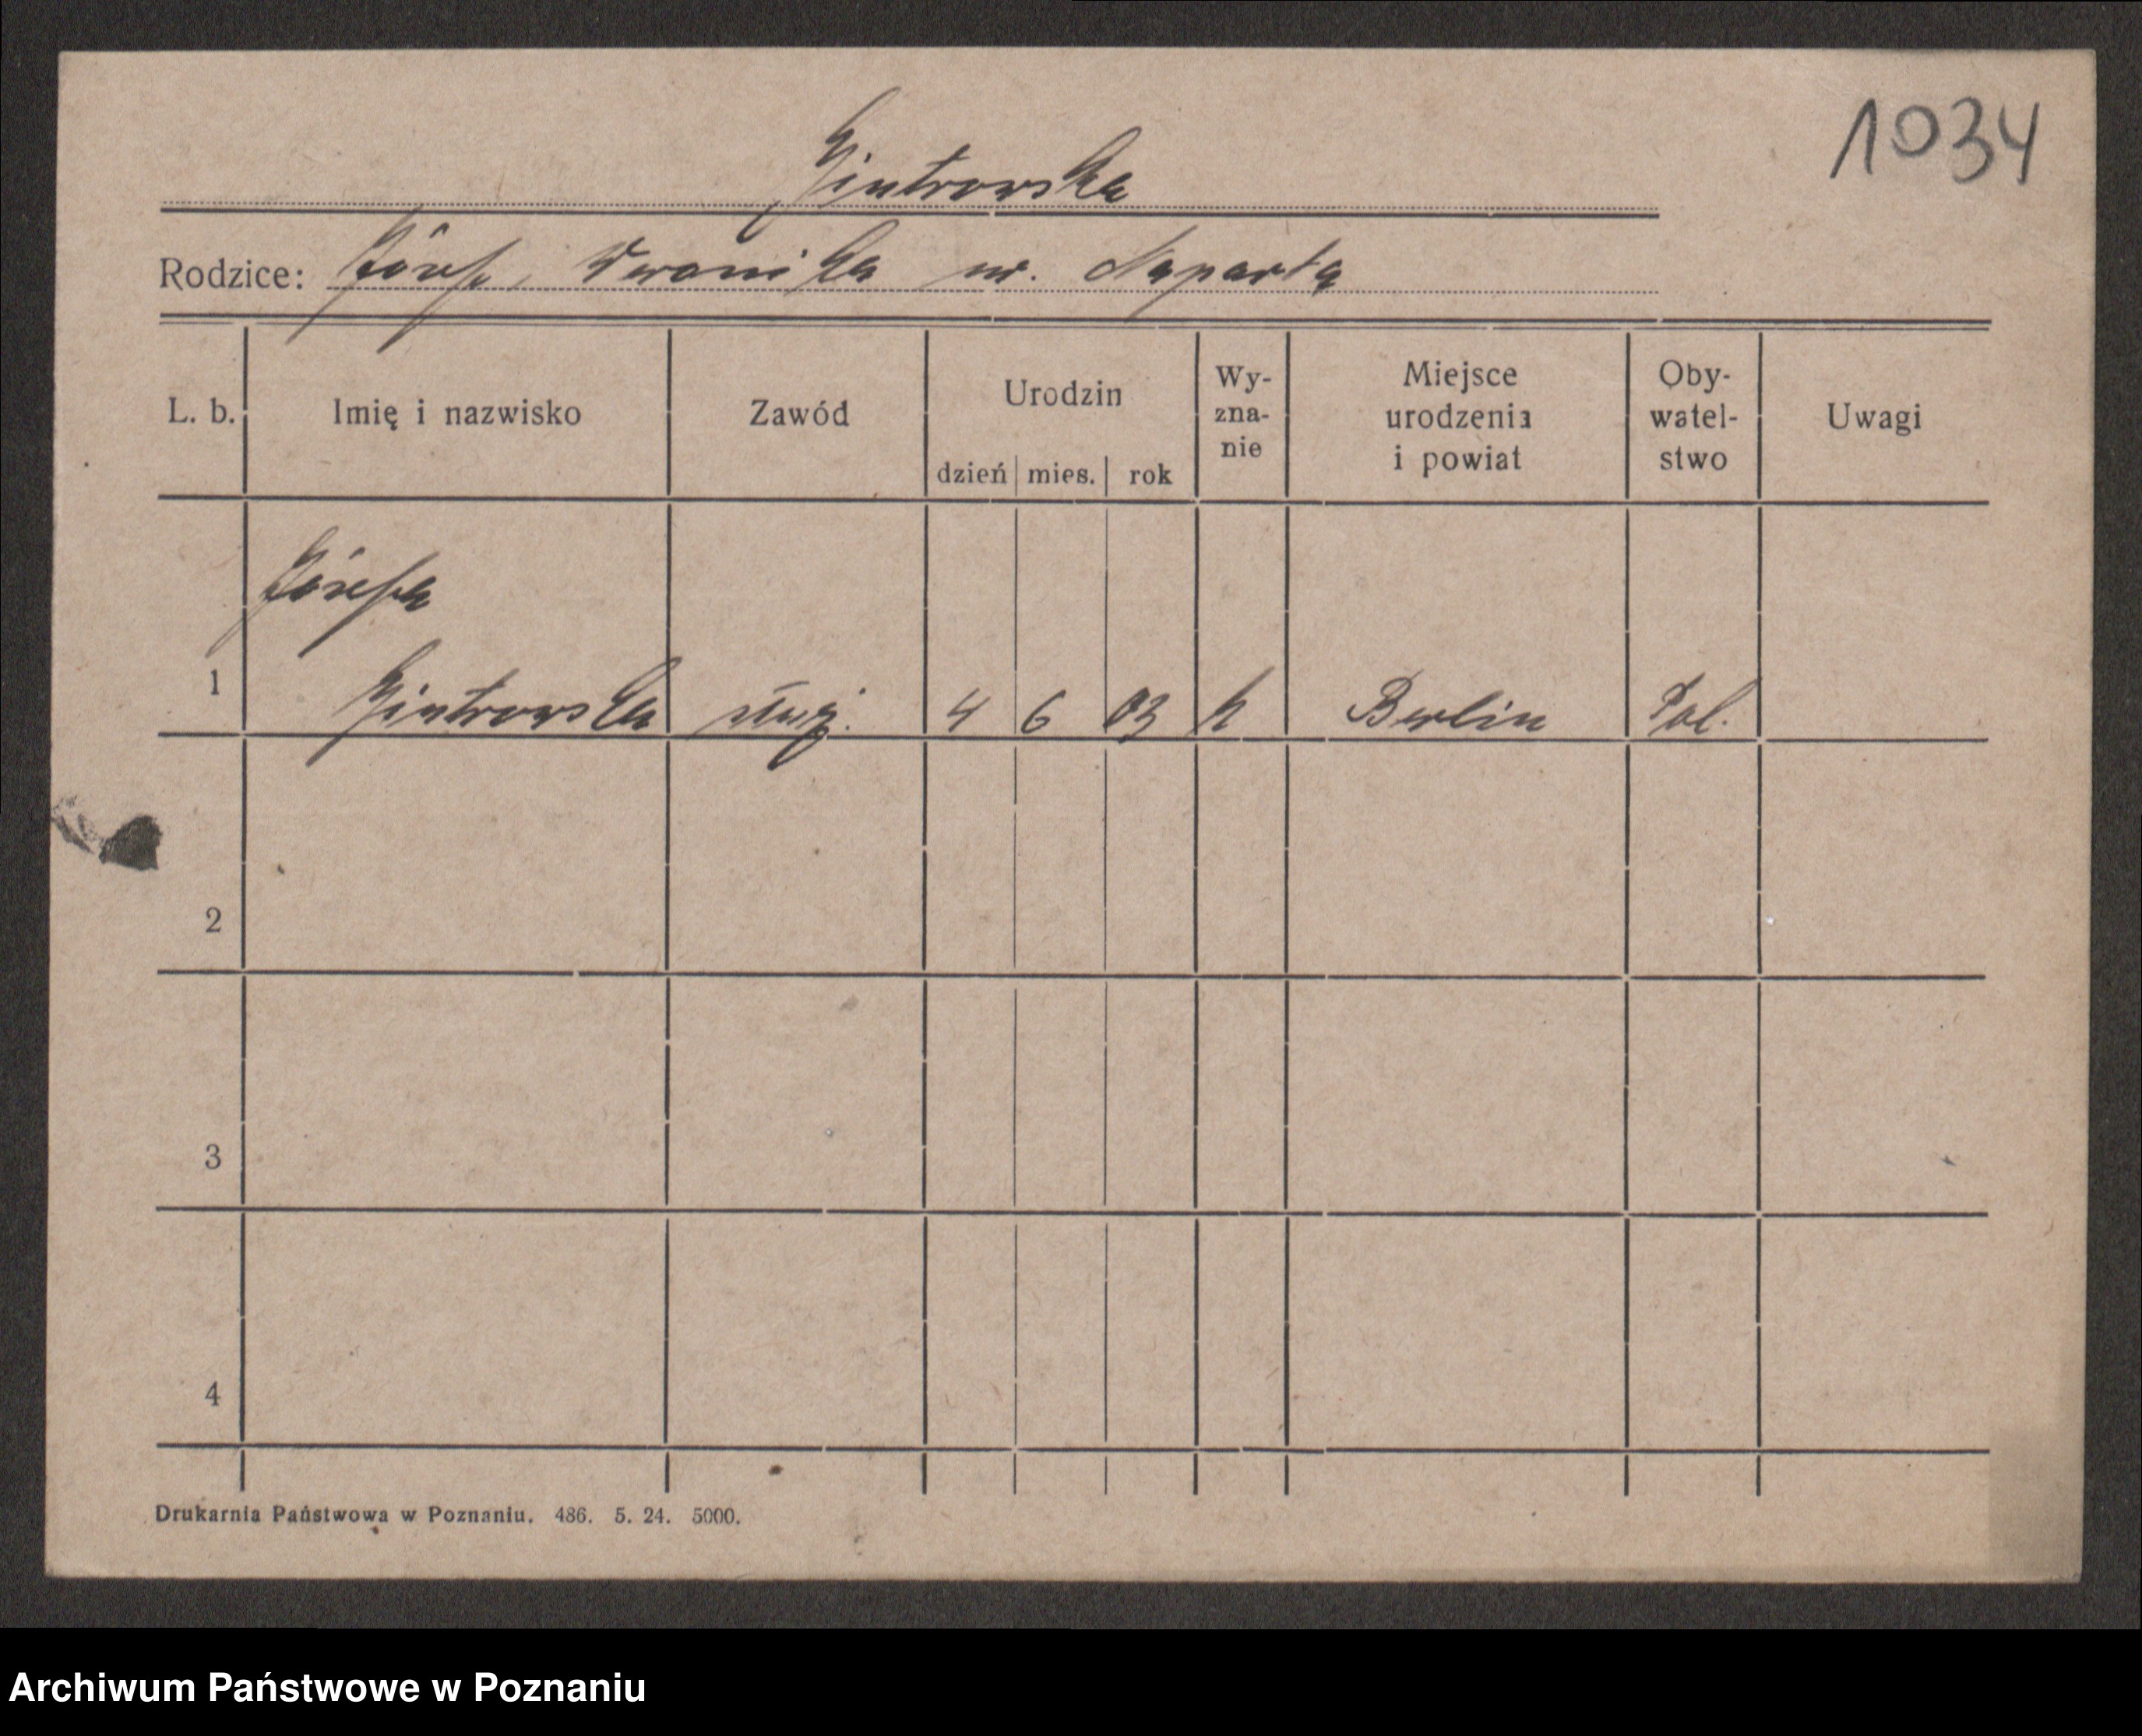 1034
Gintrowska
Rodzice: Józef, Weronika ur. Naparta
L. b. Imię i nazwisko Zawód Urodzin dzień mies. rok Wy-zna-nie Miejsce urodzenia i powiat Oby-watel-stwo Uwagi
Józefa
1 Gintrowska służ. 4 6 03 k Berlin Pol.
2
3
4
Drukarnia Państwowa w Poznaniu. 486. 5. 24. 5000.
Archiwum Państwowe w Poznaniu